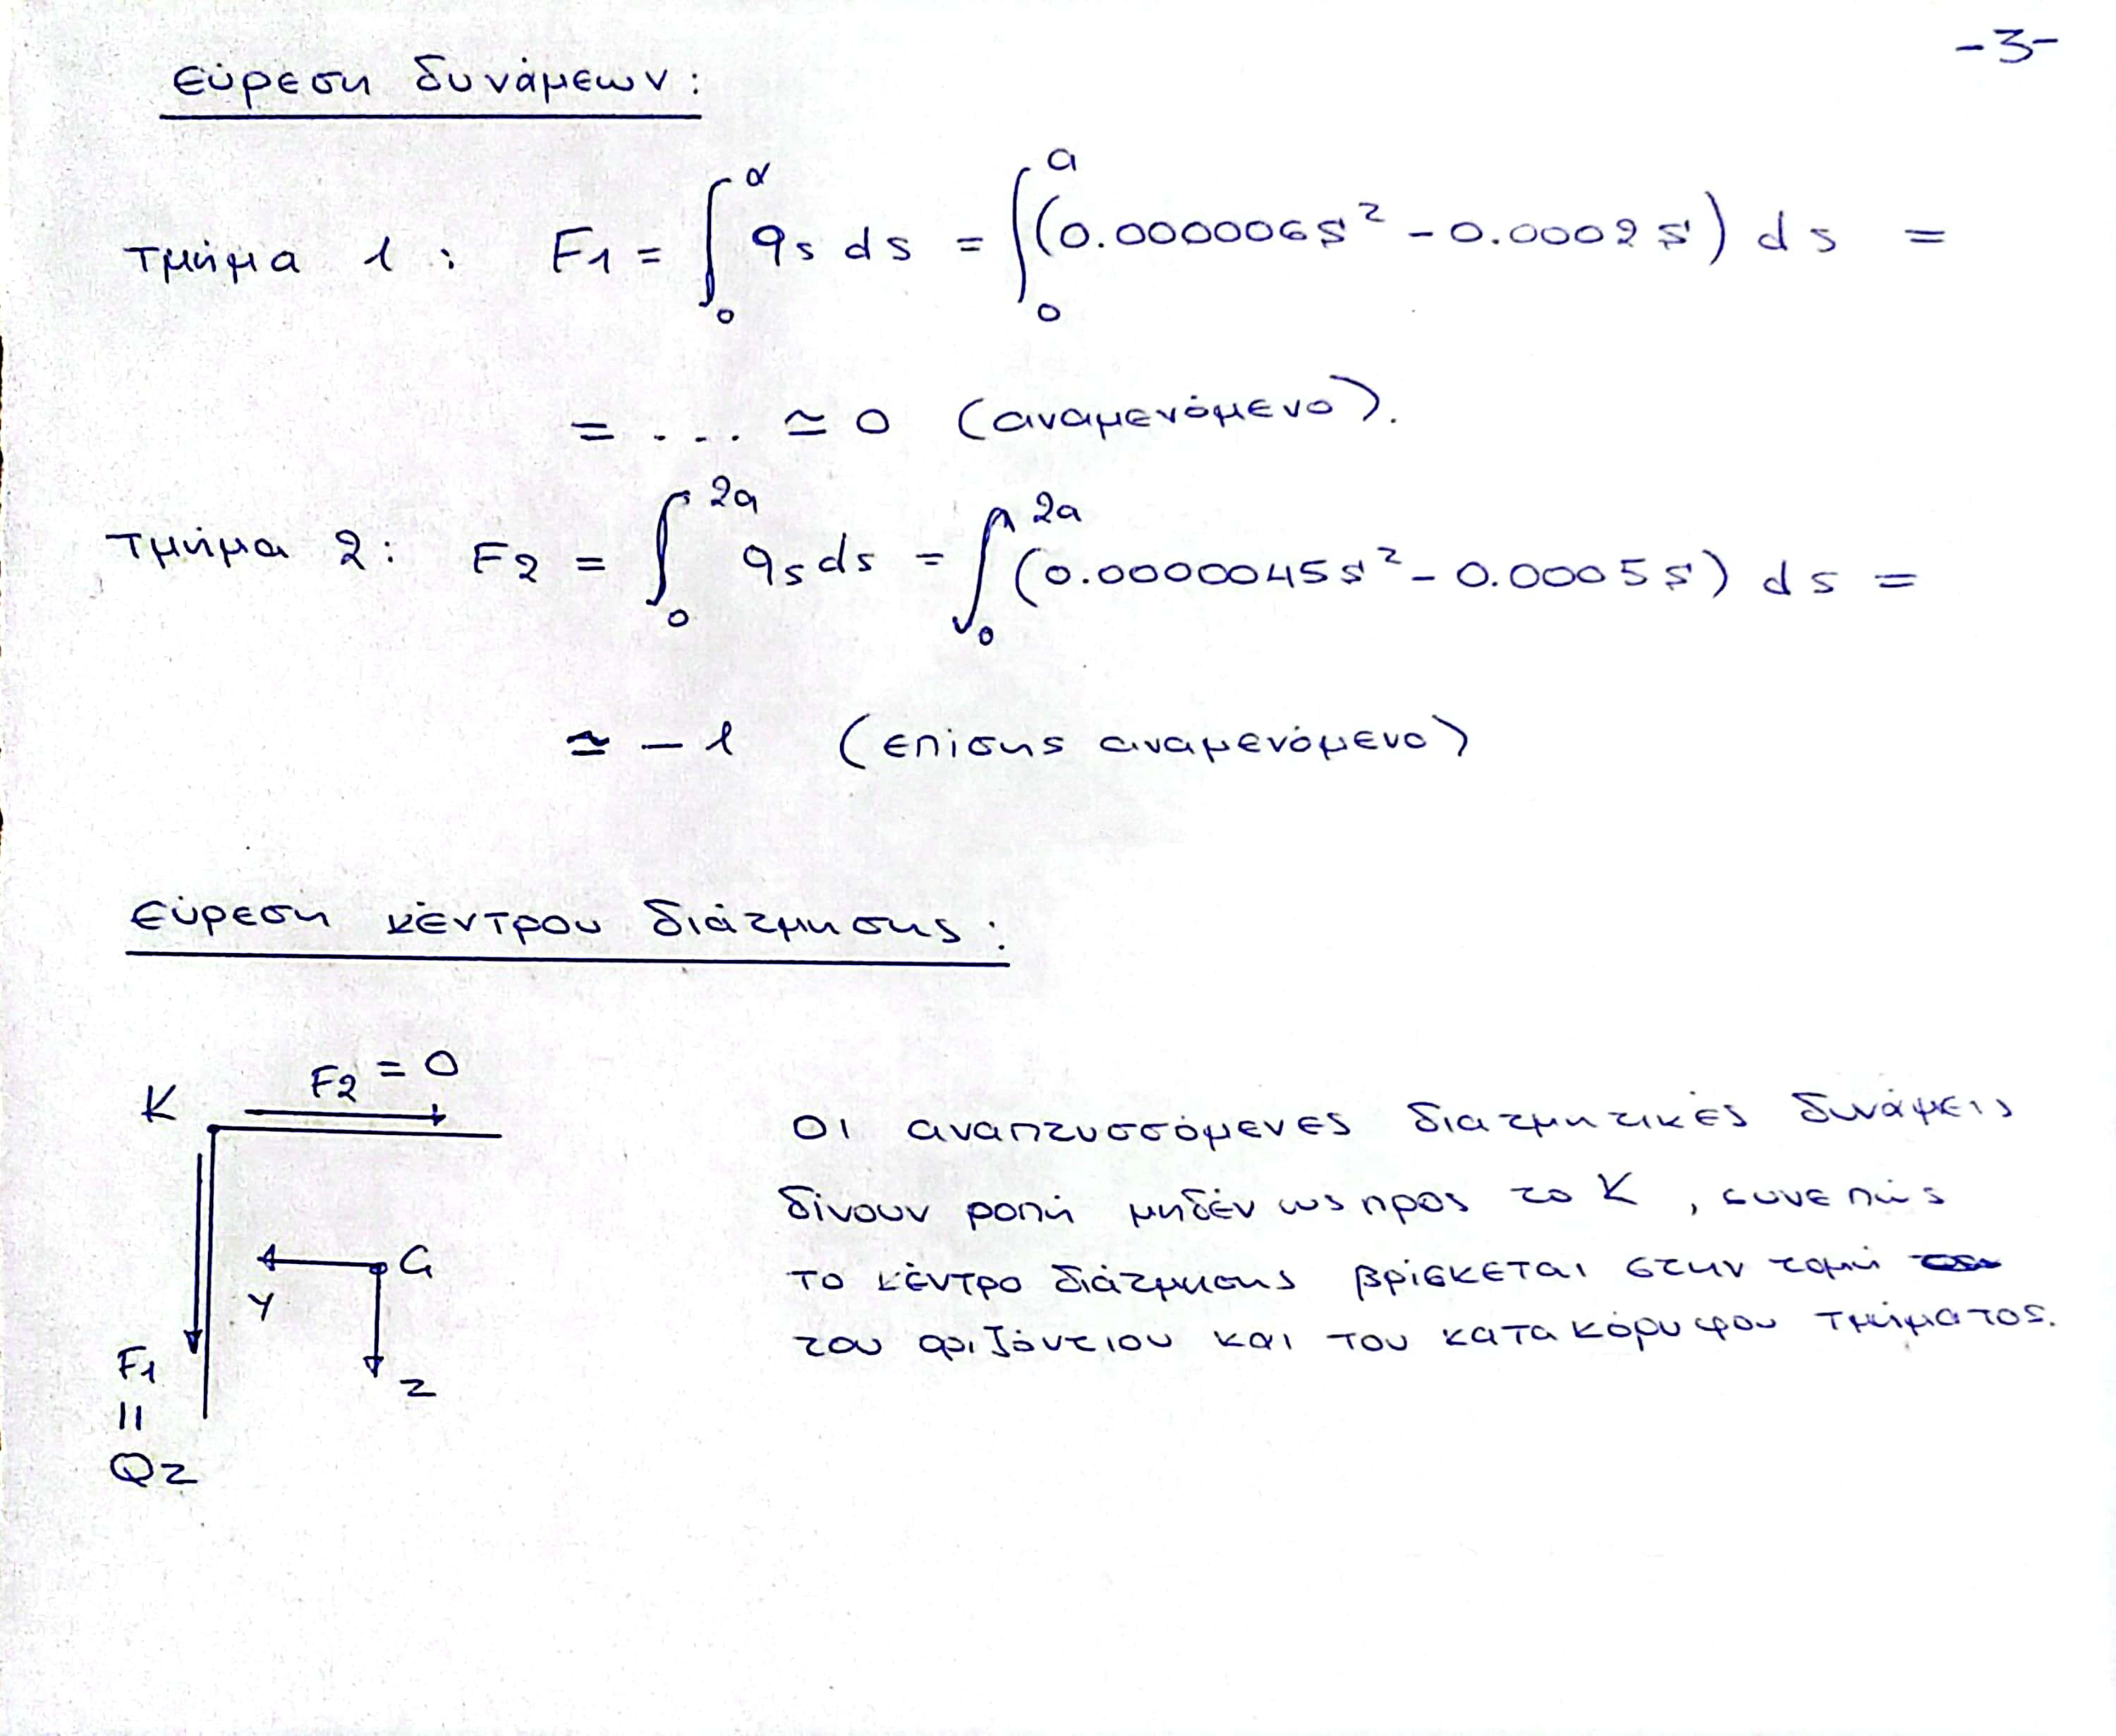 -3-
εύρεση δυνάμεων:
τμήμα 1: F1 = ∫₀^α qs ds = ∫₀^a (0.000006s² - 0.0002s) ds =
= ... ≃ 0 (αναμενόμενο).
τμήμα 2: F2 = ∫₀^2a qs ds = ∫₀^2a (0.0000045s² - 0.0005s) ds =
≃ -1 (επίσης αναμενόμενο)
εύρεση κέντρου διάτμησης:
F2 = 0
K
G
Y
F1
z
=
Qz
Οι αναπτυσσόμενες διατμητικές δυνάμεις
δίνουν ροπή μηδέν ως προς το K, συνεπώς
το κέντρο διάτμησης βρίσκεται στην τομή
του οριζόντιου και του κατακόρυφου τμήματος.